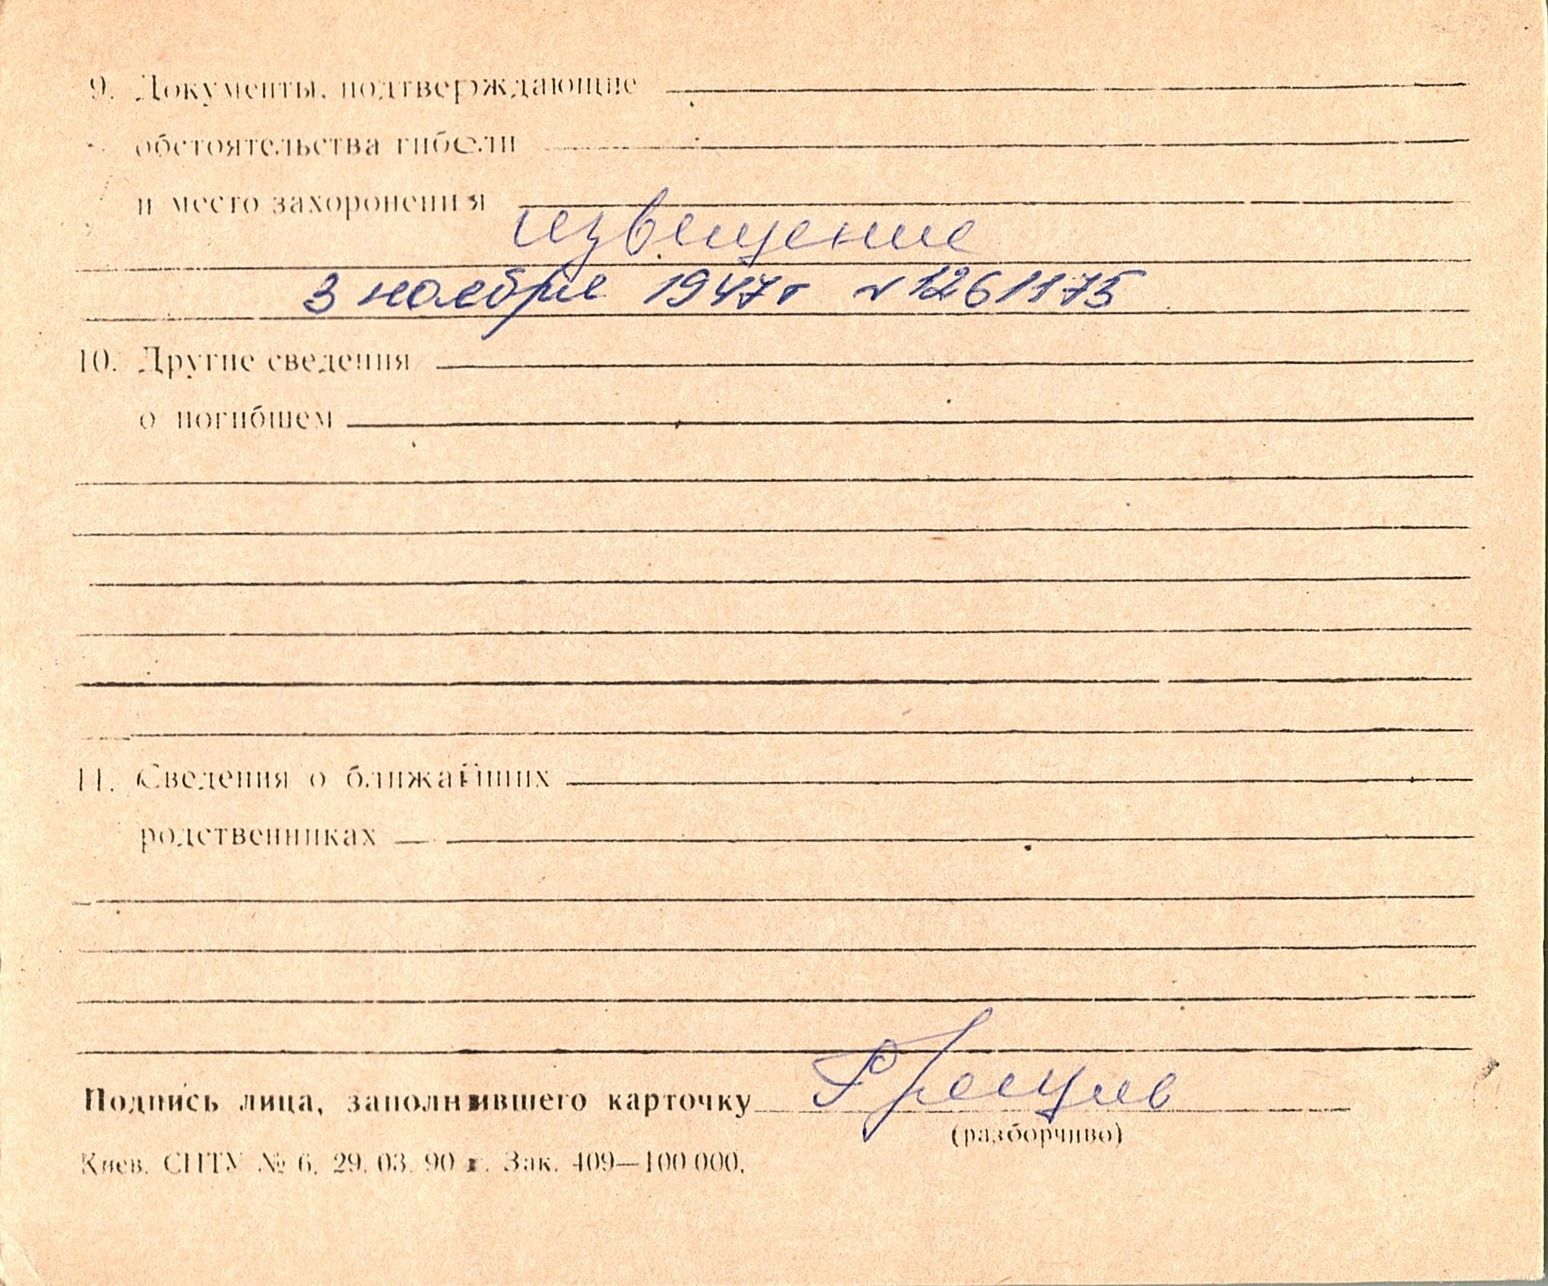 9. Документы, подтверждающие
обстоятельства гибели
и место захоронения
извещение
3 ноября 1947г №1261175
10. Другие сведения
о погибшем
11. Сведения о ближайших
родственниках
Подпись лица, заполнившего карточку
(разборчиво)
Киев. СПТУ № 6. 29. 03. 90 г. Зак. 409—100 000.